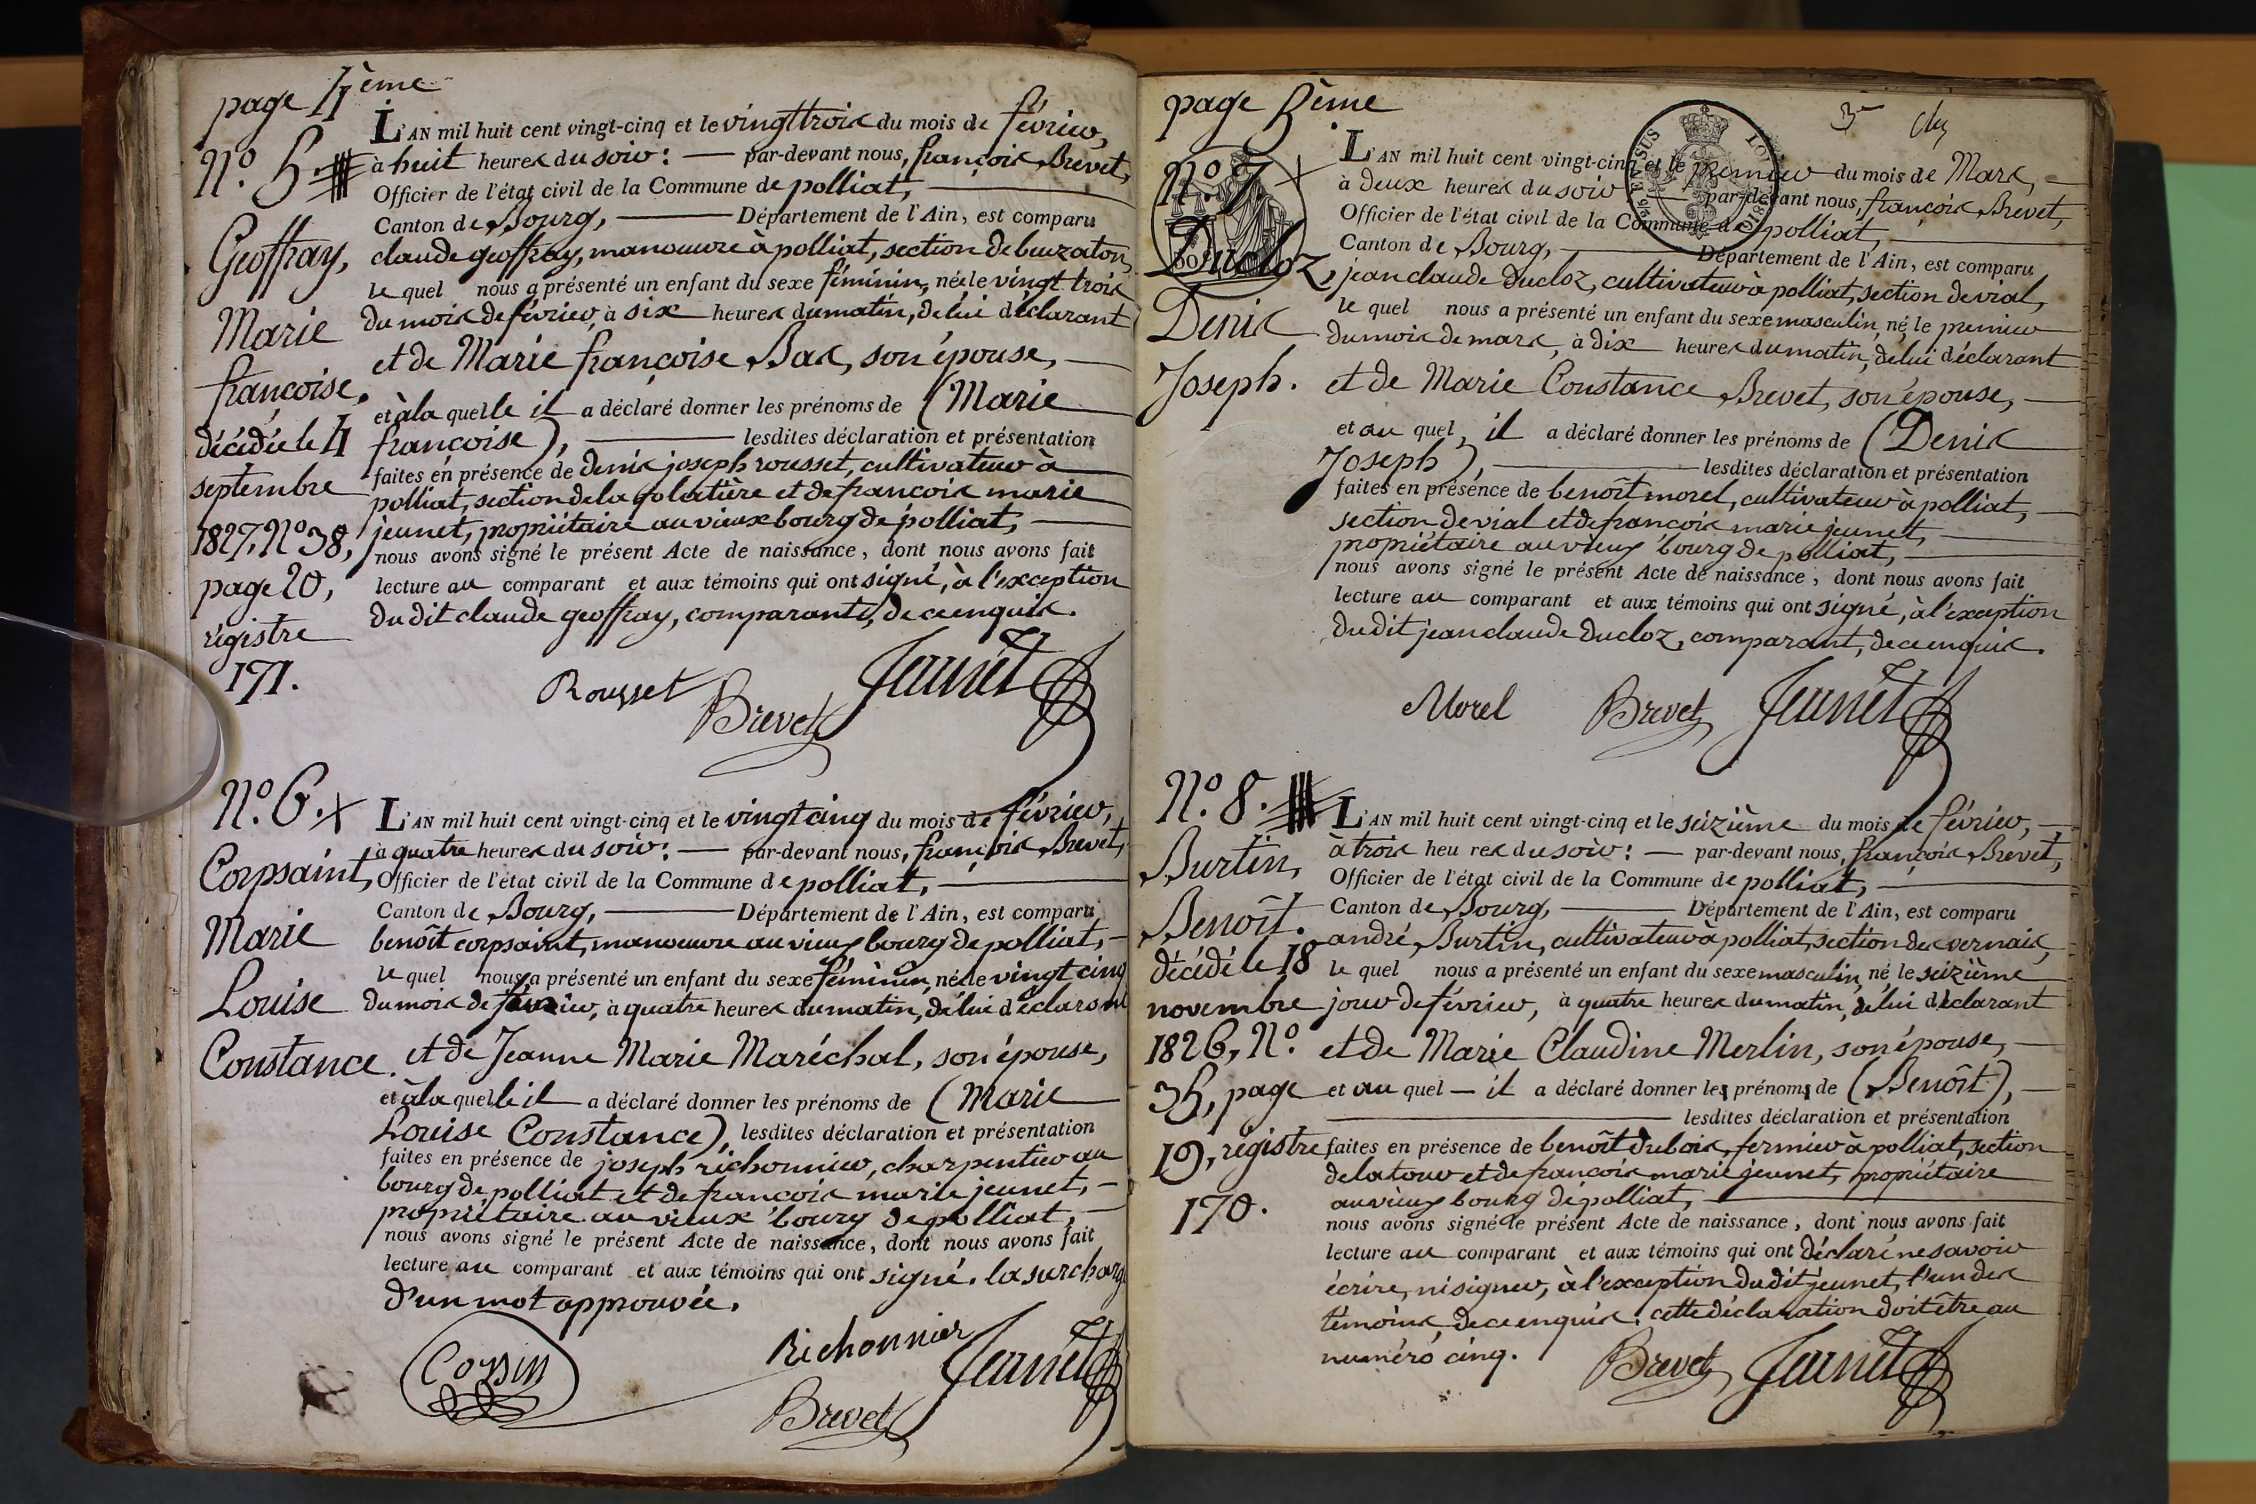 page 4ème
N.º 5.
Geoffray,
Marie
françoise,
décédée le 4
septembre
1827, Nº 38,
page 20,
régistre
171.
L'AN mil huit cent vingt-cinq et le vingt trois du mois de février,
à huit heures du soir : par-devant nous, françois Brevet,
Officier de l'état civil de la Commune de polliat,
Canton de Bourg, Département de l'Ain, est comparu
claude geoffray, manoeuvre à polliat, section de buzaton,
le quel nous a présenté un enfant du sexe féminin, née le vingt trois
du mois de février, à six heures du matin, de lui déclarant
et de Marie françoise Bas, son épouse,
et à la quelle il a déclaré donner les prénoms de (Marie
françoise), lesdites déclaration et présentation
faites en présence de denis joseph rousset, cultivateur à
polliat, section de la golatière et de françois marie
jeunet, propriétaire au vieux bourg de polliat,
nous avons signé le présent Acte de naissance, dont nous avons fait
lecture au comparant et aux témoins qui ont signé, à l'exception
du dit claude geoffray, comparant, de ce enquis.
Rousset Brevet Jeunet
N.º 6.
Corpsaint,
Marie
Louise
Constance.
L'AN mil huit cent vingt-cinq et le vingt cinq du mois de février,
à quatre heures du soir : par-devant nous, françois Brevet,
Officier de l'état civil de la Commune de polliat,
Canton de Bourg, Département de l'Ain, est comparu
benoît corpsaint, manoeuvre au vieux bourg de polliat,
le quel nous a présenté un enfant du sexe féminin, née le vingt cinq
du mois de février, à quatre heures du matin, de lui déclarant
et de Jeanne Marie Maréchal, son épouse,
et à la quelle il a déclaré donner les prénoms de (Marie
Louise Constance), lesdites déclaration et présentation
faites en présence de joseph richonnier, charpentier au
bourg de polliat et de françois marie jeunet,
propriétaire au vieux bourg de polliat,
nous avons signé le présent Acte de naissance, dont nous avons fait
lecture au comparant et aux témoins qui ont signé. la surcharge
d'un mot approuvée.
Corsin Richonnier Jeunet
Brevet
page 5ème
3
N.º 7.
Ducloz,
Denis
Joseph.
L'AN mil huit cent vingt-cinq et le premier du mois de Mars,
à deux heures du soir par-devant nous, françois Brevet,
Officier de l'état civil de la Commune de polliat,
Canton de Bourg, Département de l'Ain, est comparu
jean claude ducloz, cultivateur à polliat, section de vial,
le quel nous a présenté un enfant du sexe masculin, né le premier
du mois de mars, à dix heures du matin, de lui déclarant
et de Marie Constance Brevet, son épouse,
et au quel, il a déclaré donner les prénoms de (Denis
Joseph), lesdites déclaration et présentation
faites en présence de benoît morel, cultivateur à polliat,
section de vial et de françois marie jeunet,
propriétaire au vieux bourg de polliat,
nous avons signé le présent Acte de naissance, dont nous avons fait
lecture au comparant et aux témoins qui ont signé, à l'exception
du dit jean claude Ducloz, comparant, de ce enquis.
Morel Brevet Jeunet
N.º 8.
Burtin,
Benoît.
décédé le 18
novembre
1826, Nº.
35, page
19, régistre
170.
L'AN mil huit cent vingt-cinq et le seizième du mois de février,
à trois heures du soir : par-devant nous, françois Brevet,
Officier de l'état civil de la Commune de polliat,
Canton de Bourg, Département de l'Ain, est comparu
andré Burtin, cultivateur à polliat, section des vernais,
le quel nous a présenté un enfant du sexe masculin, né le seizième
jour de février, à quatre heures du matin, de lui déclarant
et de Marie Claudine Merlin, son épouse,
et au quel il a déclaré donner les prénoms de (Benoît),
lesdites déclaration et présentation
faites en présence de benoît dubois, fermier à polliat, section
de la tour et de françois marie jeunet, propriétaire
au vieux bourg de polliat,
nous avons signé le présent Acte de naissance, dont nous avons fait
lecture au comparant et aux témoins qui ont déclaré ne savoir
écrire, ni signer, à l'exception du dit jeunet, l'un des
témoins, de ce enquis. cette déclaration doit être au
numéro cinq.
Brevet Jeunet